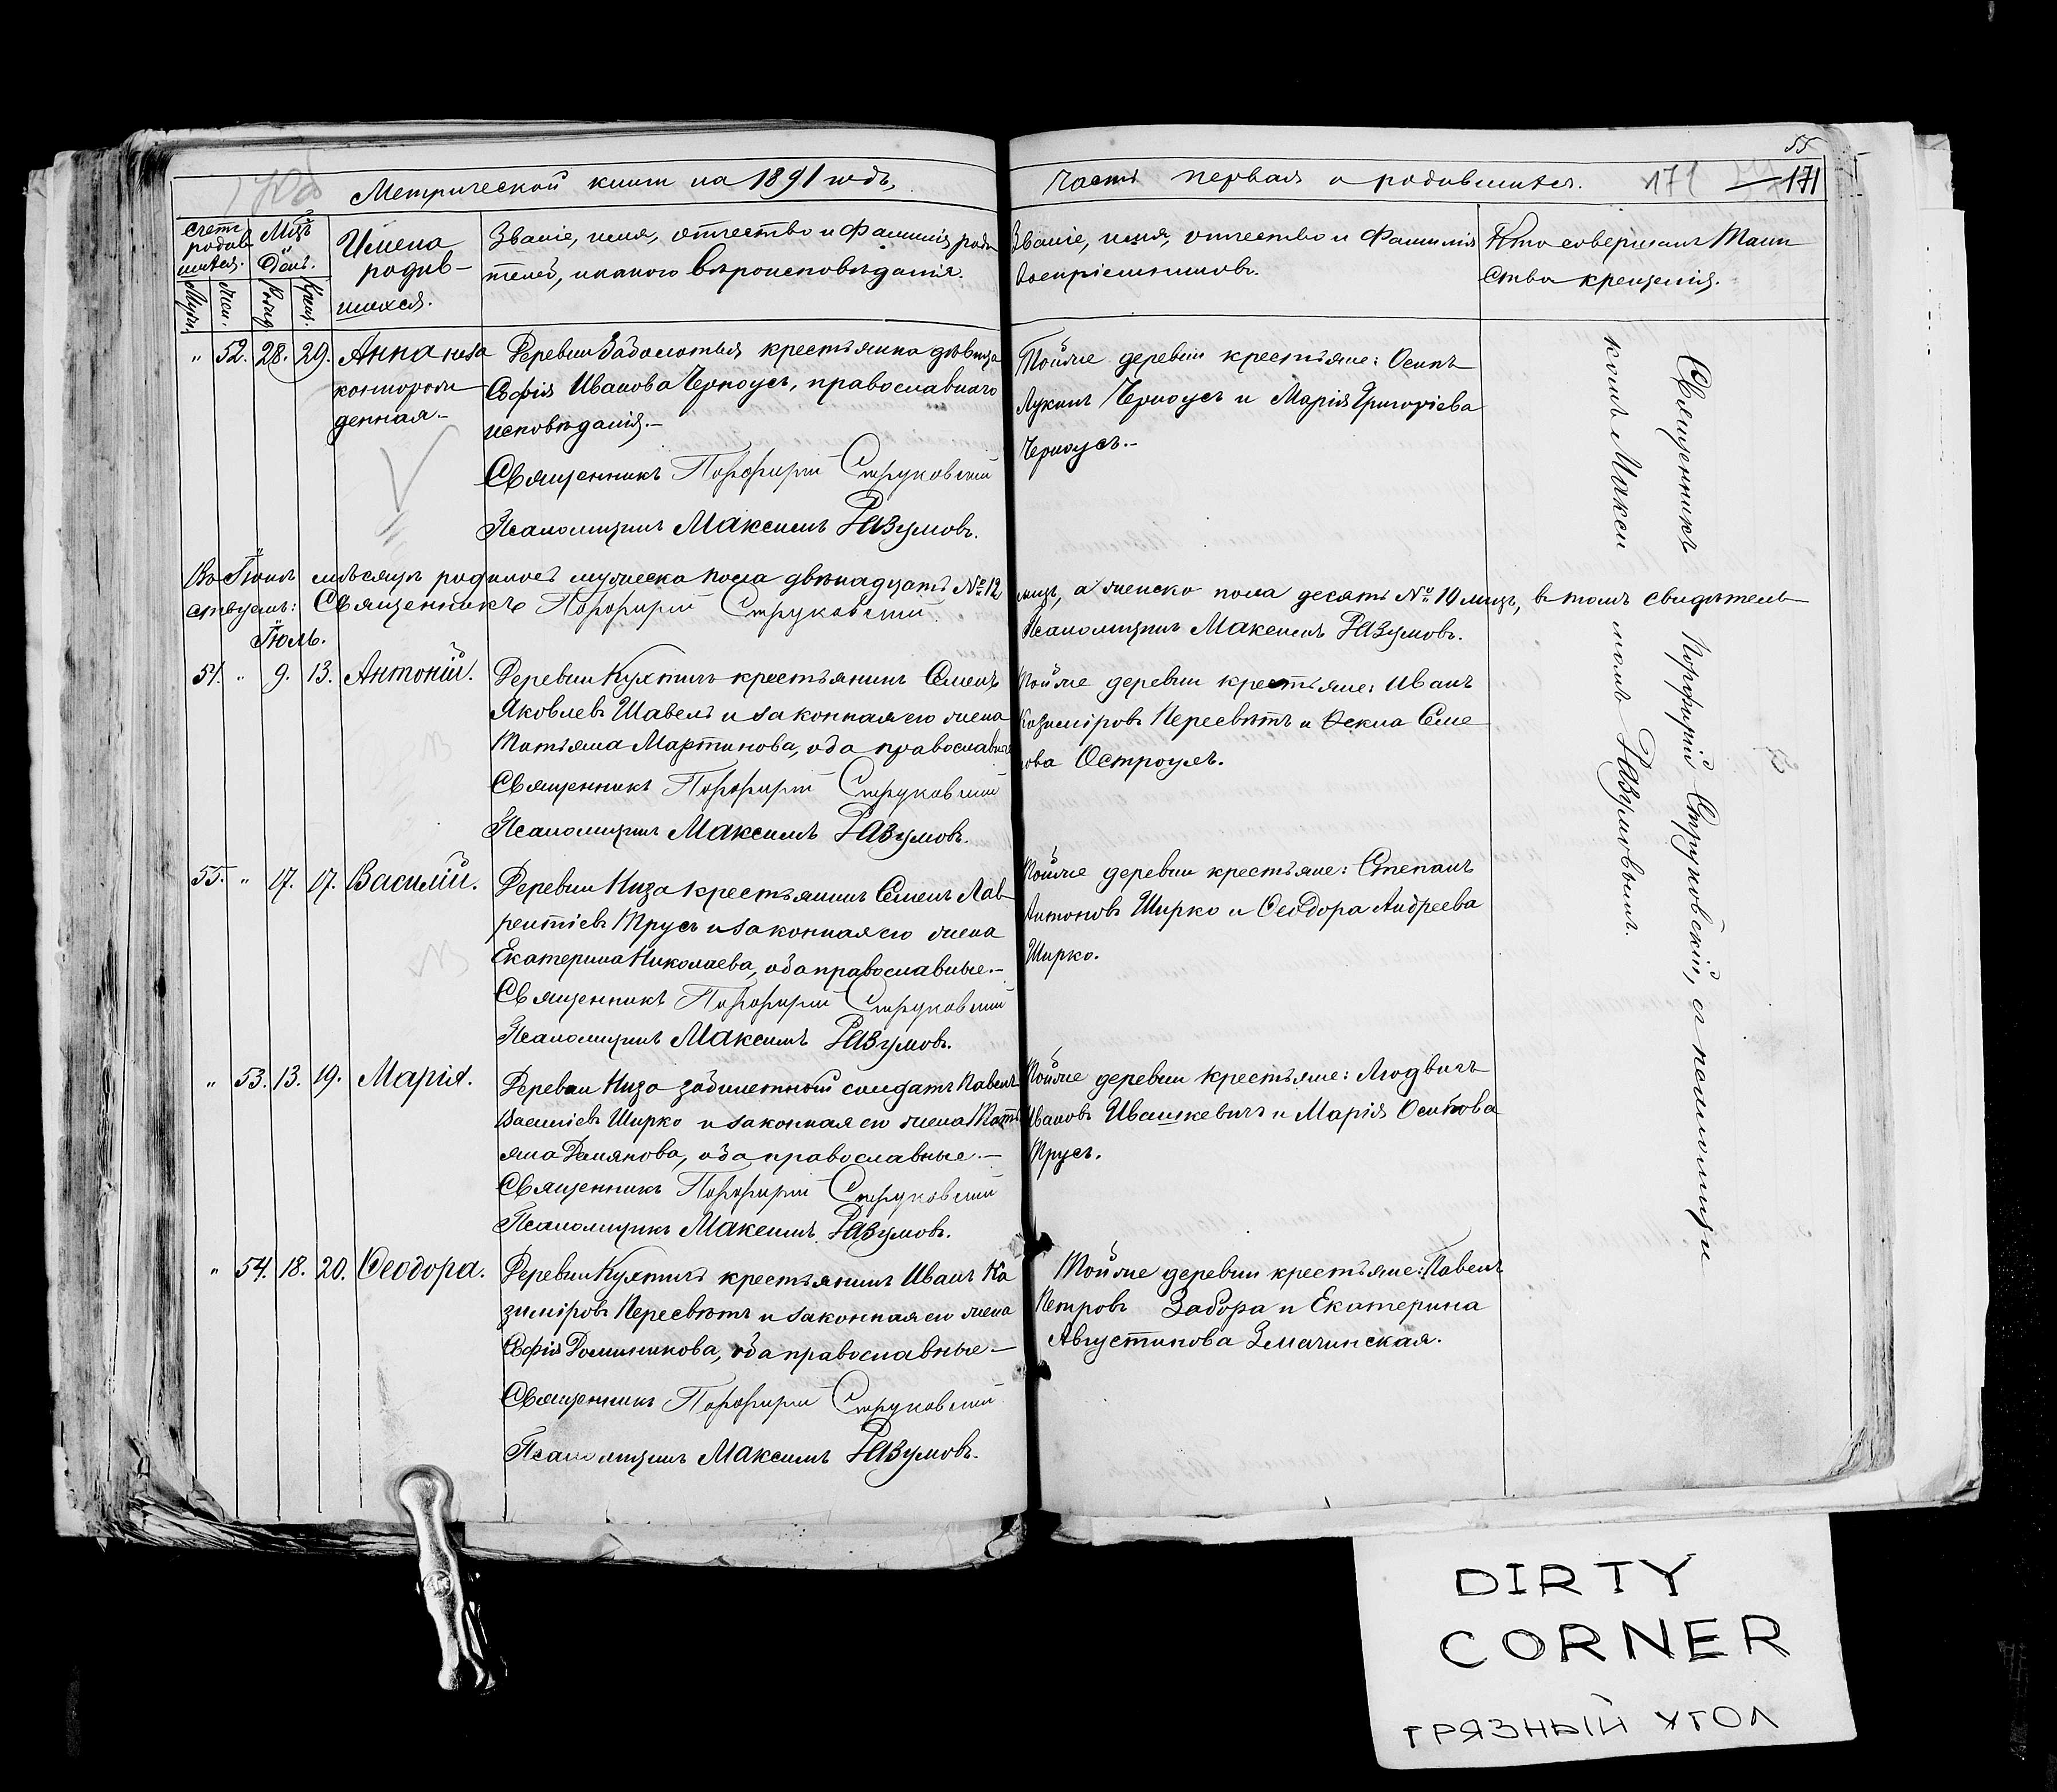 55
Метрической книги на 1891 годъ,
часть первая о родившихся. 171 171
Счетъ родив шихся.
Мцъ и день.
Имена родив- шихся.
Званіе, имя, отчество и фамилія роди
телей, и какого вѣроисповѣданія.
Званіе, имя, отчество и фамилія
воспріемниковъ.
Кто совершалъ Таин
ство крещенія.
Муж. Жен. Рожд. Крещ.
" 52. 28. 29. Анна неза
конорож
денная.-
Деревни Заболотья крестьянка дѣвица
Софія Иванова Черноусъ, православнаго
исповѣданія.-
Священникъ Порфирій Струковскій
Псаломщикъ Максимъ Разумовъ.
Тойже деревни крестьяне: Осипъ
Лукинъ Черноусъ и Марія Григоріева
Черноусъ.-
Въ Іюнѣ мѣсяцѣ родилось мужеска пола двѣнадцать №12
мцъ, а женска пола десять № 10 мцъ, въ томъ свидѣтель
ствуемъ: Священникъ Порфирій Струковскій.
Псаломщикъ Максимъ Разумовъ.
Іюль.
54. " 9. 13. Антоній.
Деревни Кухтичъ крестьянинъ Семенъ
Яковлевъ Шавель и законная его жена
Татьяна Мартинова, оба православные
Священникъ Порфирій Струковскій
Псаломщикъ Максимъ Разумовъ.
Тойже деревни крестьяне: Иванъ
Казиміровъ Пересвѣтъ и Текла Семе
нова Остроухъ.
55. " 17. 17. Василій.
Деревни Низа крестьянинъ Семенъ Лав
рентіевъ Трусъ и законная его жена
Екатерина Николаева, оба православные.-
Священникъ Порфирій Струковскій
Псаломщикъ Максимъ Разумовъ.
Тойже деревни крестьяне: Степанъ
Антоновъ Ширко и Ѳеодора Андреева
Ширко.
" 53. 13. 19. Марія.
Деревни Низа забилетный солдатъ Павелъ
Василіевъ Ширко и законная его жена Тать
яна Демянова, оба православные.-
Священникъ Порфирій Струковскій
Псаломщикъ Максимъ Разумовъ.
Тойже деревни крестьяне: Людвигъ
Ивановъ Ивашкевичъ и Марія Осипова
Трусъ.
" 54. 18. 20. Ѳеодора.
Деревни Кухтичъ крестьянинъ Иванъ Ка
зиміровъ Пересвѣтъ и законная его жена
Софія Доминикова, оба православные-
Священникъ Порфирій Струковскій
Псаломщикъ Максимъ Разумовъ.
Тойже деревни крестьяне: Павелъ
Петровъ Забора и Екатерина
Августинова Змачинская.
Священникъ Порфирій Струковскій, съ псаломщи
комъ Макси момъ Разумовымъ.
DIRTY
CORNER
ГРЯЗНЫЙ УГОЛ